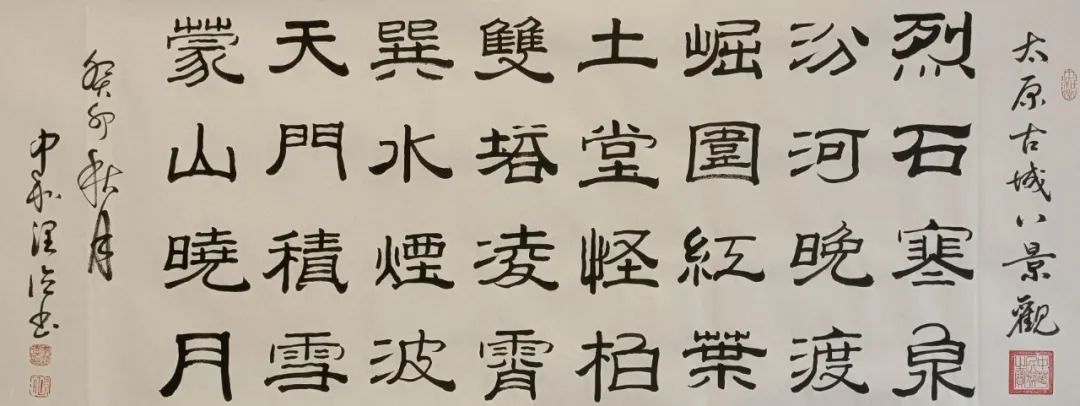 太原古城八景觀
烈石寒泉
汾河晚渡
崛圍紅葉
土堂怪柏
雙塔凌霄
巽水煙波
天門積雪
蒙山曉月
癸卯秋月
中和書